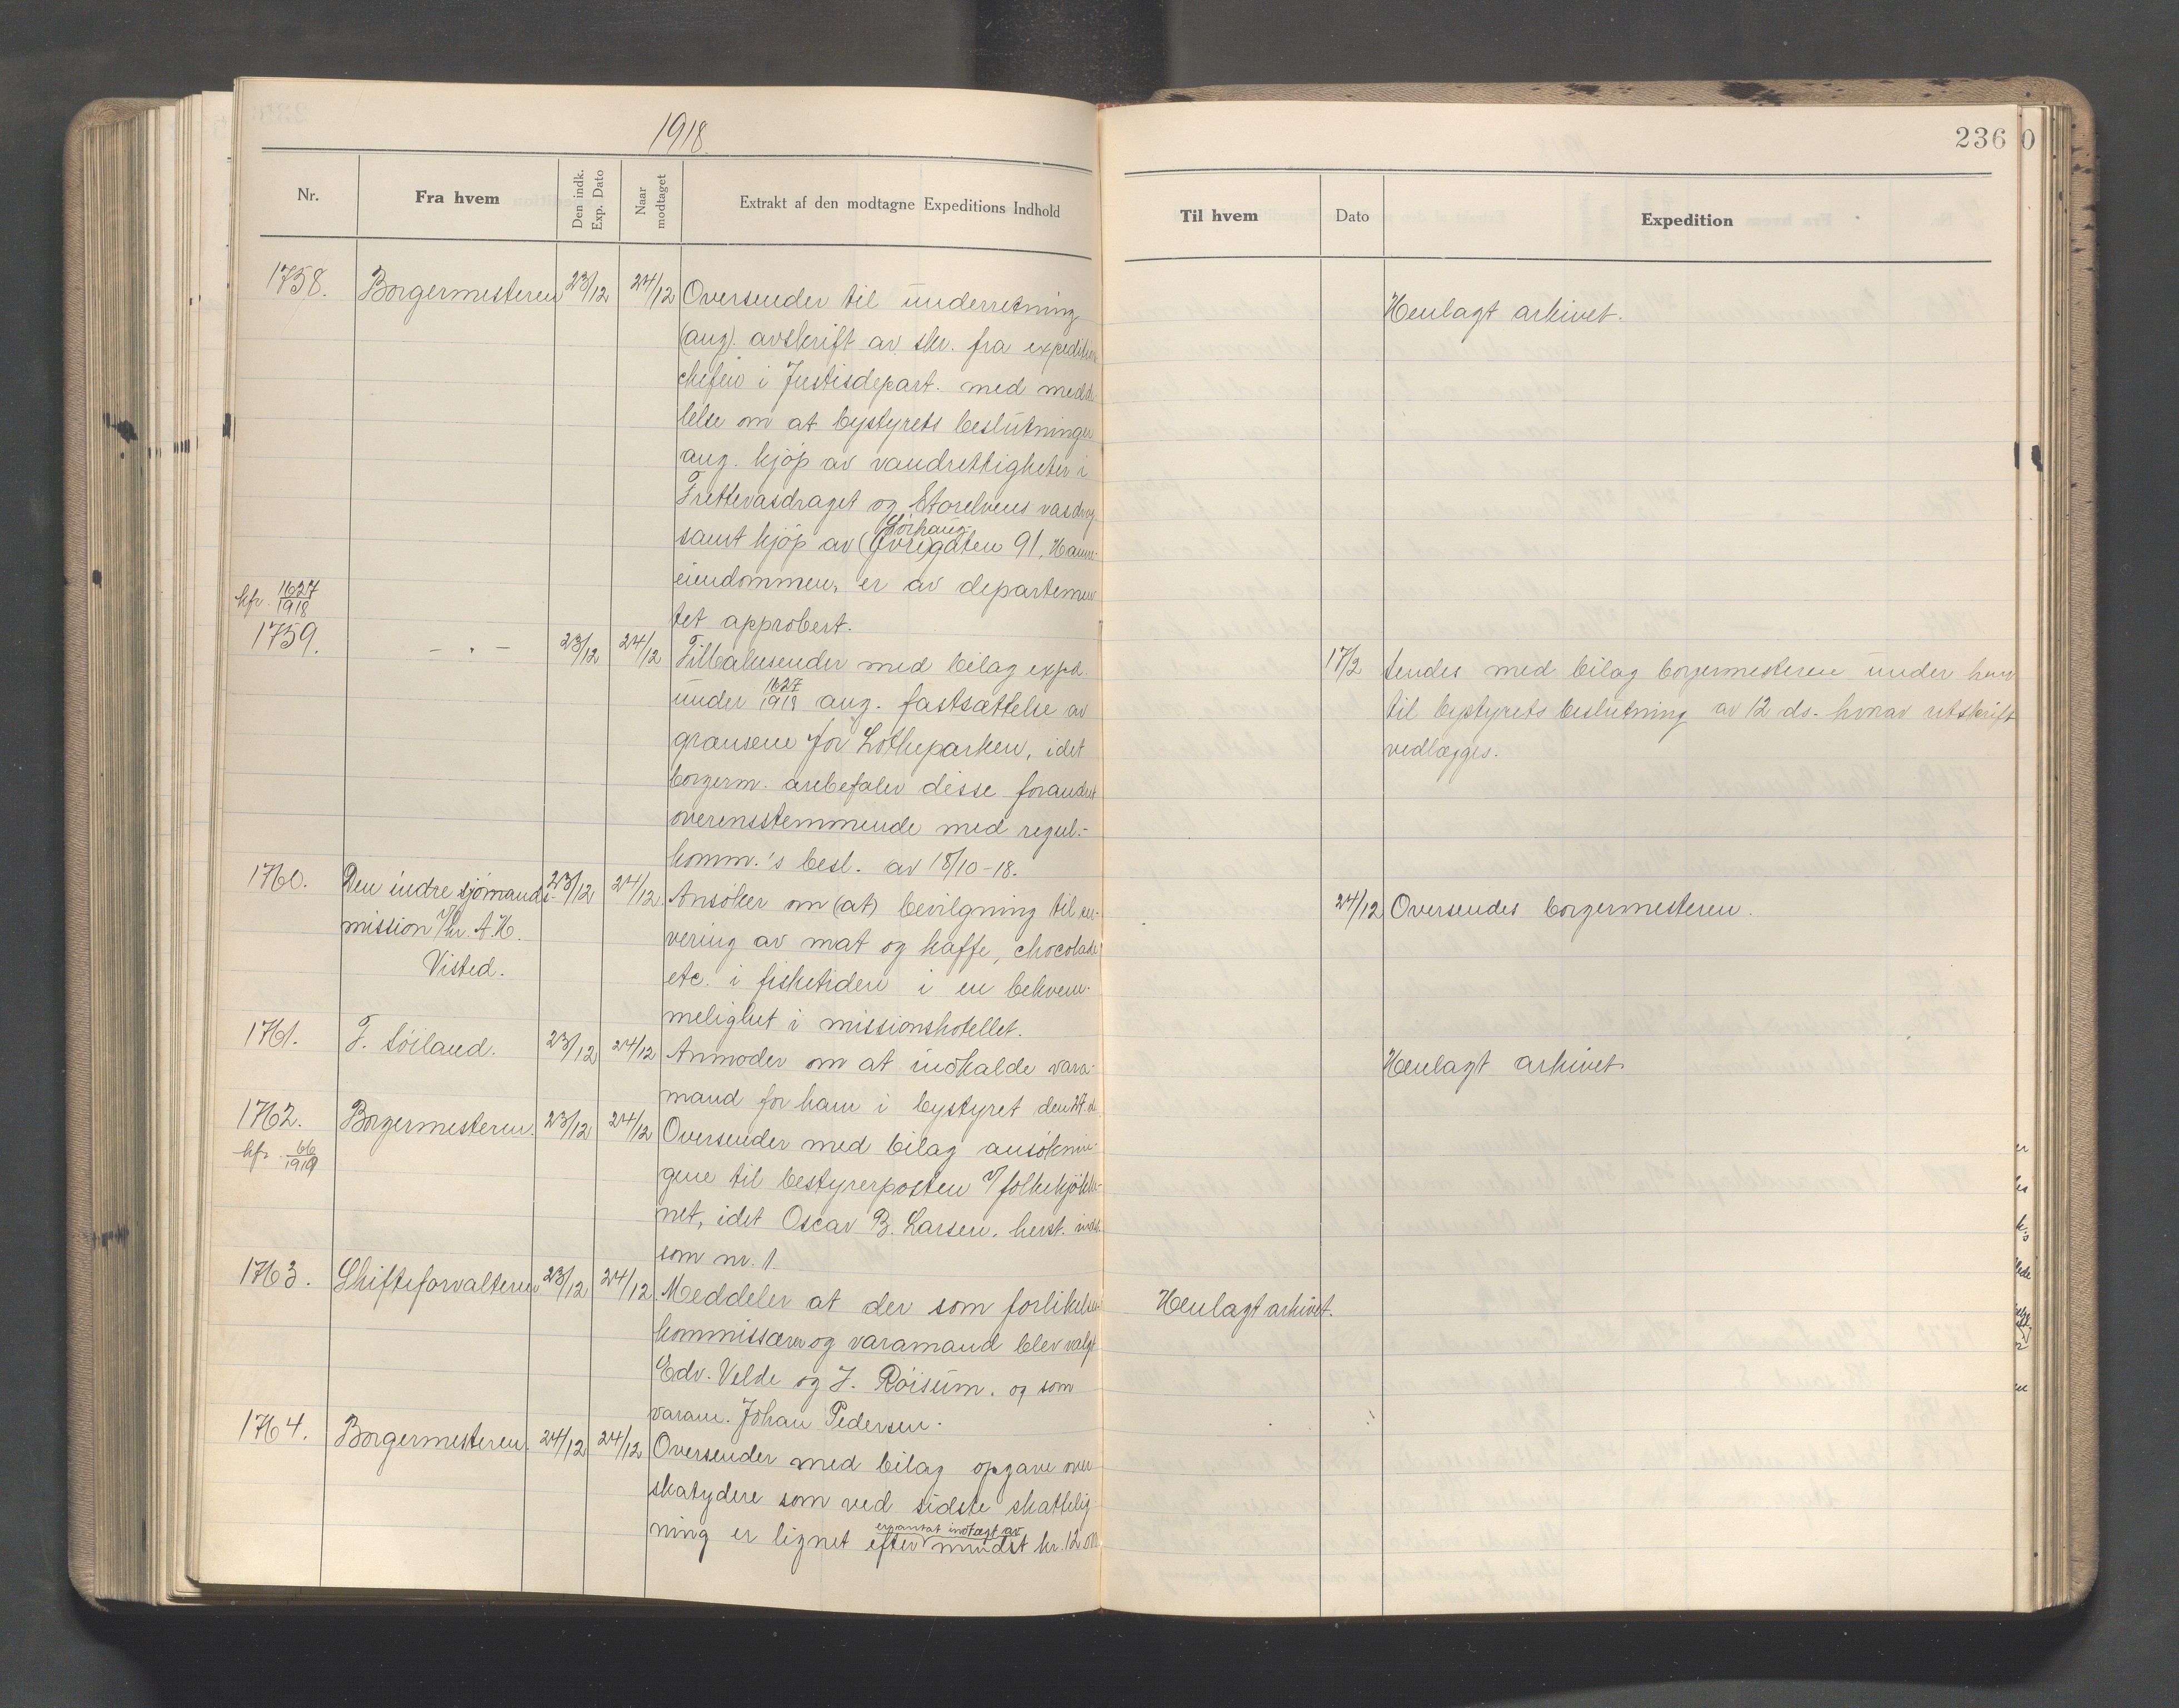 1918.
236
0
Nr.
Fra hvem
Den indk. Exp. Dato
Naar modtaget
Extrakt af den modtagne Expeditions Indhold
Til hvem
Dato
Expedition
1758.
Borgermesteren
23/12
24/12
Oversender til underretning
(ang). avskrift av skr. fra expeditions
chefen i Justisdepart. med medde
lelse om at bystyrets beslutninger
ang. kjøp av vandrettigheter i
Frettevasdraget og Storelvens vasdrag
Sørhaug
samt kjøp av (Øvre)gaten 91,
eiendommen, er av departemen
tet approbert.
Henlagt arkivet.
kfr. 1627/1918
1759.
- " -
23/12
24/12
Tilbakesender med bilag expd.
under 1627/1918 ang. fastsættelse av
grænsene for Lotheparken, idet
borgerm. anbefaler disse forandret
overensstemmende med regul.-
komm.'s besl. av 18/10-18.
17/2
Sendes med bilag borgermesteren under henv
til bystyrets beslutning av 12 ds. hvorav utskrift
vedlægges.
1760.
Den indre sjømands-
mission v/hr. A.K.
Visted.
23/12
24/12
Ansøker om (at) bevilgning til ser-
vering av mat og kaffe, chocolade
etc. i fisketiden i en bekvem-
melighet i missionshotellet.
24/12
Oversendes borgermesteren.
1761.
T. Søiland.
23/12
24/12
Anmoder om at indkalde vara-
mand for ham i bystyret den 27. ds
Henlagt arkivet.
1762.
kfr. 66/1919
Borgermesteren.
23/12
24/12
Oversender med bilag ansøknin-
gene til bestyrerposten v/ folkekjøkke-
net, idet Oscar B. Larsen, herst. indst.
som nr. 1.
1763.
Skifteforvalteren
23/12
24/12
Meddeler at der som forlikelses-
kommissærer og varamand blev valgt
Edv. Velde og J. Røisum, og som
varam. Johan Pedersen.
Henlagt arkivet.
1764.
Borgermesteren.
24/12
24/12
Oversender med bilag opgave over
skatydere som ved sidste skattelig
erantat indtægt av
ning er lignet efter mindst kr. 12 000